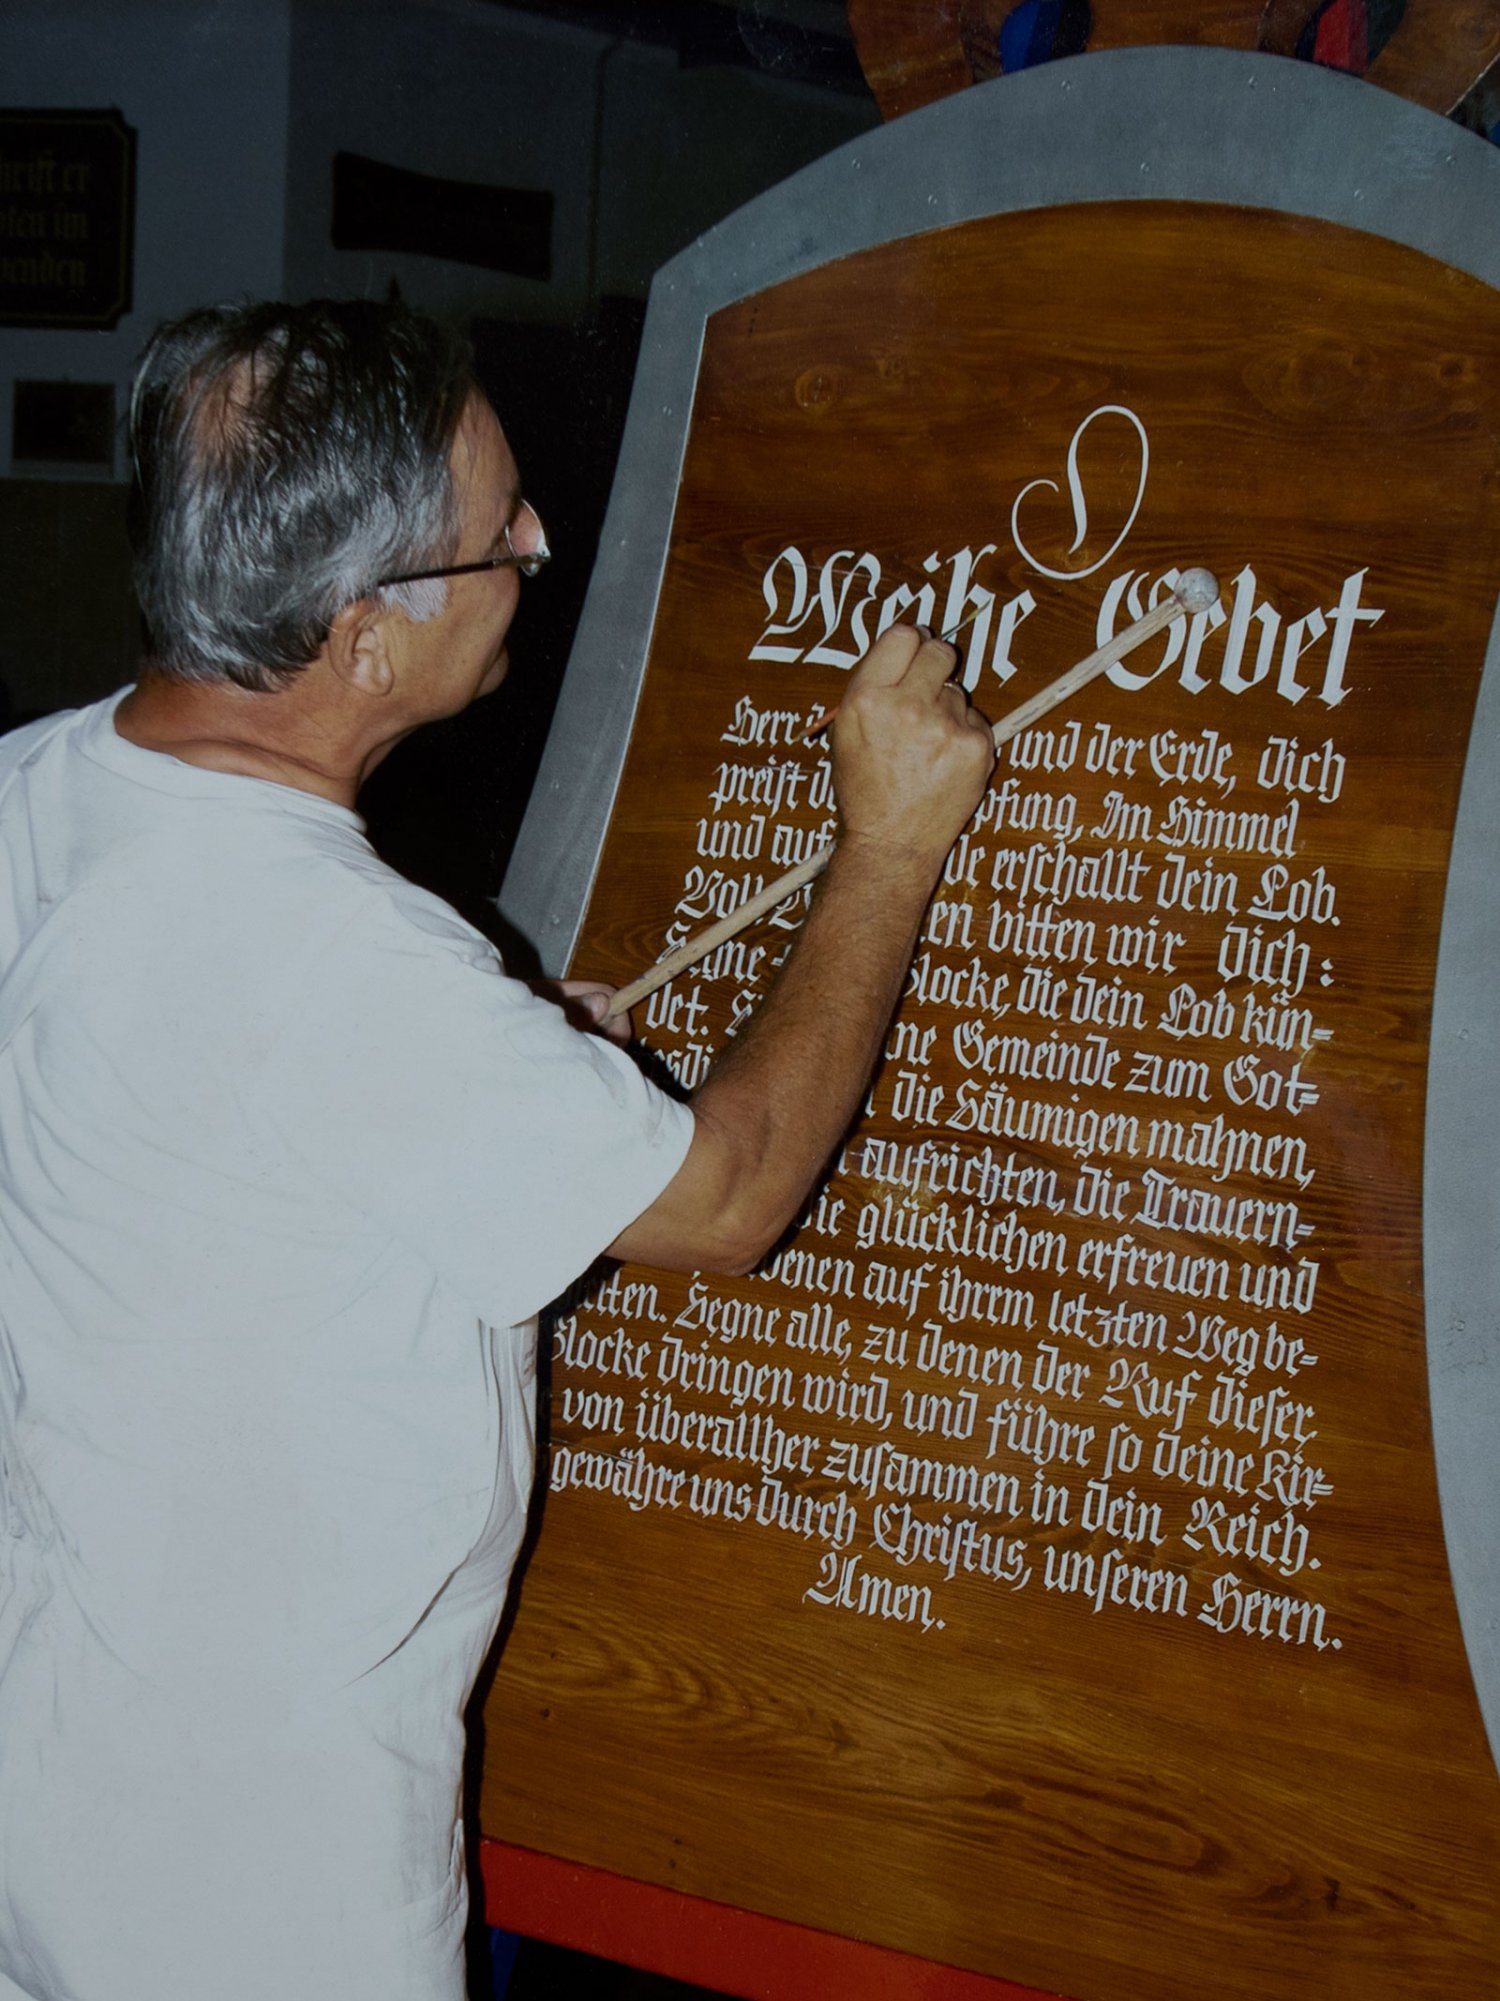 hrift er
sten im
enden
Weihe Gebet
Herr und der Erde, dich
preist pfung, Im Himmel
und auf erschallt dein Lob.
bitten wir dich:
Segne Glocke, die dein Lob kün=
det. Gemeinde zum Got=
die Säumigen mahnen,
aufrichten, die Trauern=
die glücklichen erfreuen und
auf ihrem letzten Weg be=
Segne alle, zu denen der Ruf dieser
Glocke dringen wird, und führe so deine Kir=
von überallher zusammen in dein Reich.
gewähre uns durch Christus, unseren Herrn.
Amen.